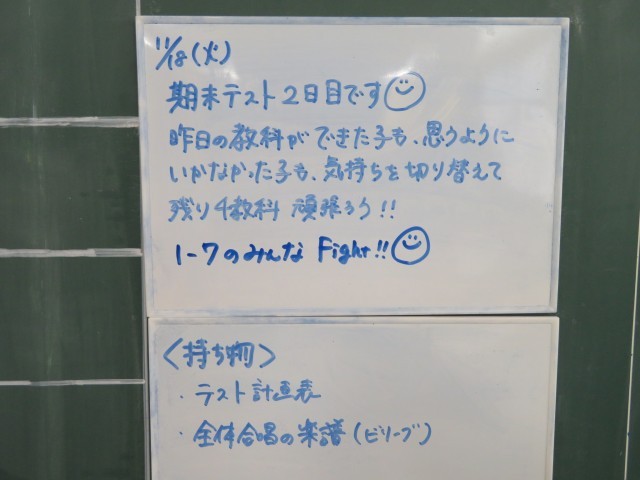 11/18(火)
期末テスト2日目です
昨日の教科ができた子も、思うように
いかなかった子も、気持ちを切り替えて
残り4教科 頑張ろう!!
1-7のみんな Fight!!
<持ち物>
・テスト計画表
・全体合唱の楽譜(ビリーブ)